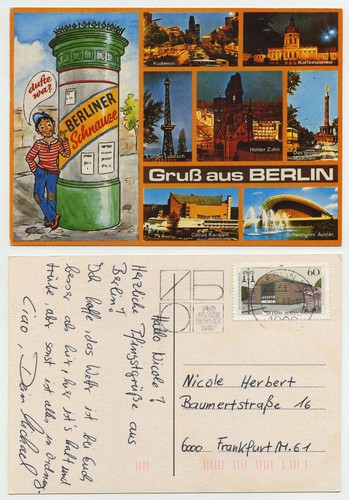 dufte wa?
BERLINER
Schnauze
Ku'damm
Kaffeewärmer
Langer Lulatsch
Hohler Zahn
Gruß aus BERLIN
Circus Karajani
Schwangere Auster
Hallo Nicole!
Herzliche Pfingstgrüße aus
Berlin!
Ich hoffe, das Wetter ist bei Euch
besser als hier, hier ist's kalt und
trübe aber sonst ist alles in Ordnung.
Ciao, Dein Michael
60
Nicole Herbert
Baumertstraße 16
6000 Frankfurt/M. 61